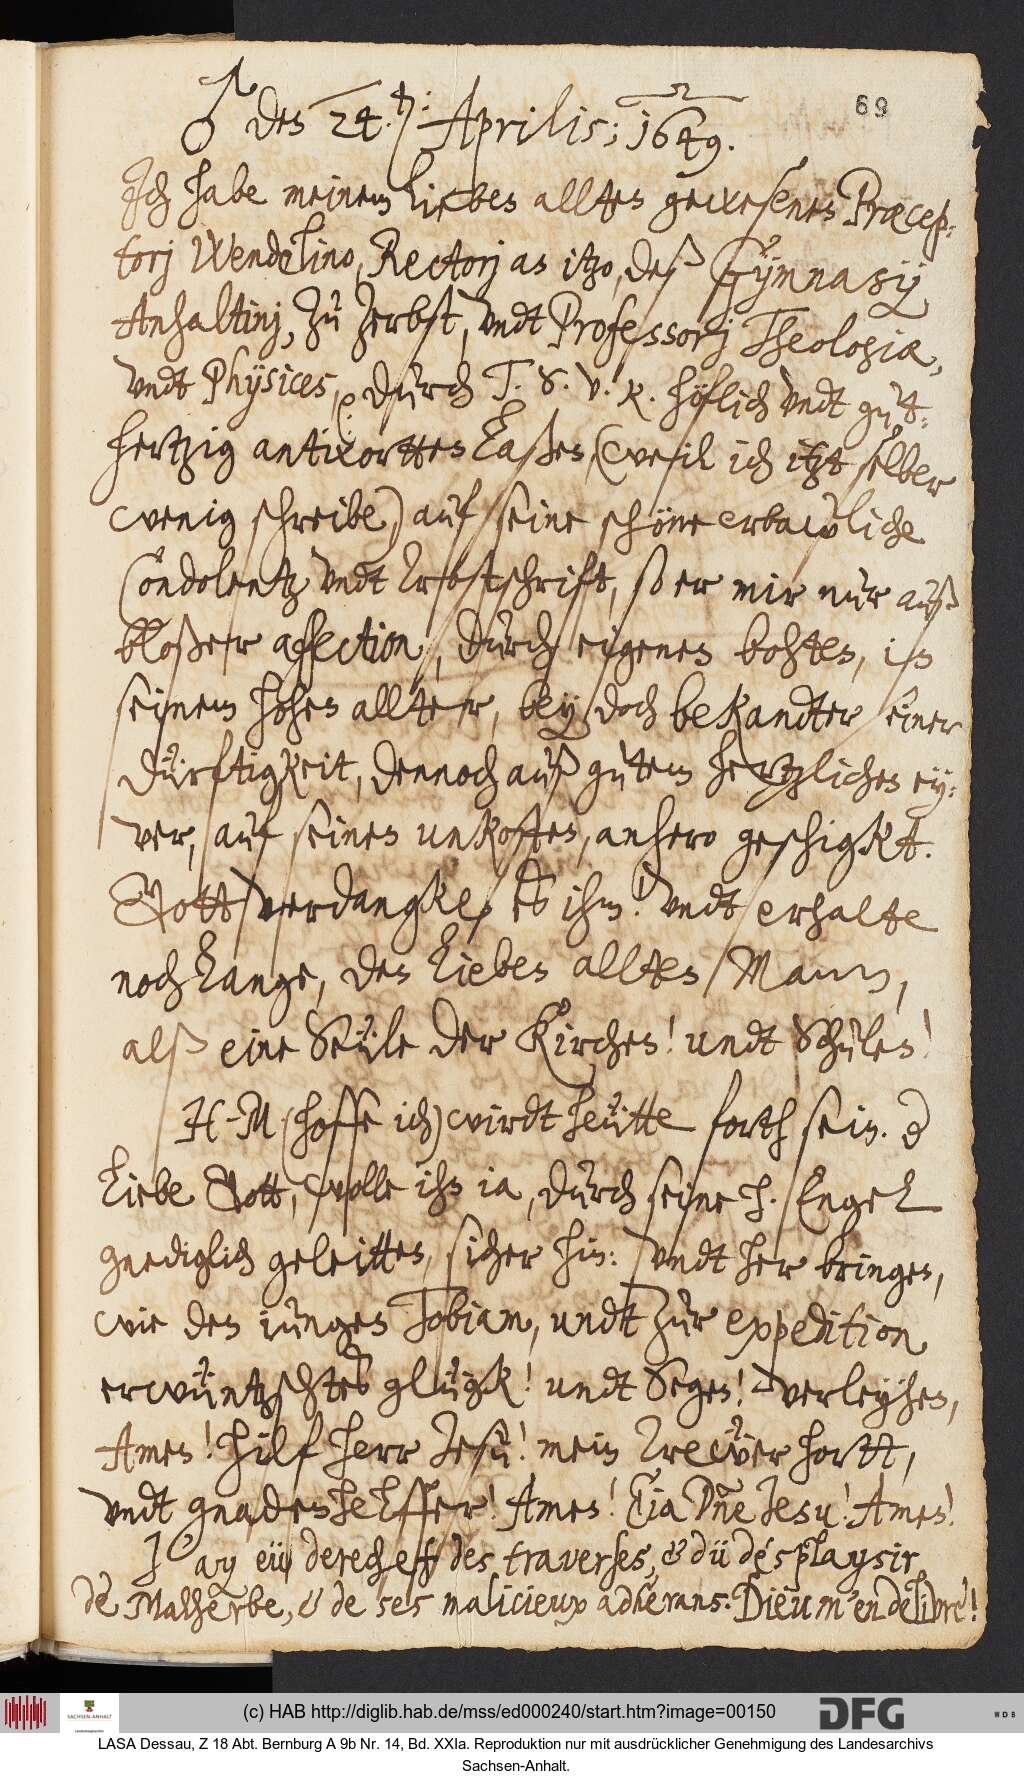 69
♂ den 24.ten: Aprilis; 1649.
Ich habe meinem lieben allten gewesenen Præcep-
torj Wendelino, Rectorj an itzo, deß Gÿmnasij
Anhaltinj, zu Zerbst, undt Professorj Theologiæ,
undt Phÿsices, durch T. S. V. K. höflich undt gut-
hertzig antworten laßen, (weil ich itzt selber
wenig schreibe) auf seine schöne erbawliche
Condolentz undt Trostschrift, so er mir nur auß
bloßer affection, durch eigenen bohten, in
seinem hohen allter, bey doch bekandter seiner
dürftigkeit, dennoch auß gutem hertzlichen ey-
ver, auf seinen unkosten, anhero geschigkt.
Gott verdangke es ihm! undt erhalte
noch lange, den lieben allten Mann,
alß eine Seüle der Kirchen! undt Schulen!
H-M (hoffe ich) wirdt heütte forth sein. der
liebe Gott, wolle ihn ia, durch seine h. Engel
gnediglich geleitten, sicher hin: undt her bringen,
wie den jungen Tobiam, undt zur expedition
erwüntzschtes glügk! undt Segen! verleyhen,
Amen! hilf herr Jesu! mein Trewer hortt,
undt gnadenhelffer! Amen! Eia Dne Jesu! Amen!
J'ay eü derechef des traverses, & dü desplaysir
de Malherbe, & de ses malicieux adherans. Dieu m'en delivre!
(c) HAB http://diglib.hab.de/mss/ed000240/start.htm?image=00150
SACHSEN-ANHALT
DFG
WDB
LASA Dessau, Z 18 Abt. Bernburg A 9b Nr. 14, Bd. XXIa. Reproduktion nur mit ausdrücklicher Genehmigung des Landesarchivs
Sachsen-Anhalt.